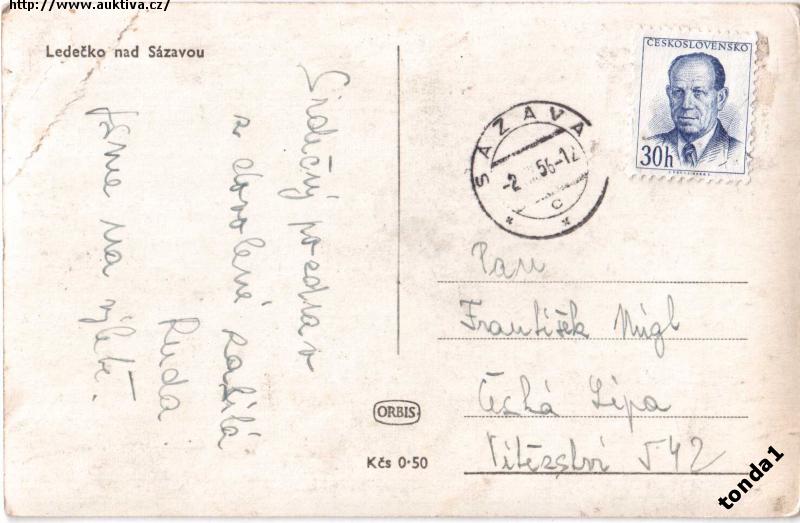 http://www.auktiva.cz/
Ledečko nad Sázavou
Srdečný pozdrav
z dovolené zasílá
Ruda
Jsme na výletě.
ČESKOSLOVENSKO
30h
SÁZAVA
-2. 56-12
C
Pan
František
Česká Lípa
Vítězství 542
ORBIS
Kčs 0·50
tonda1